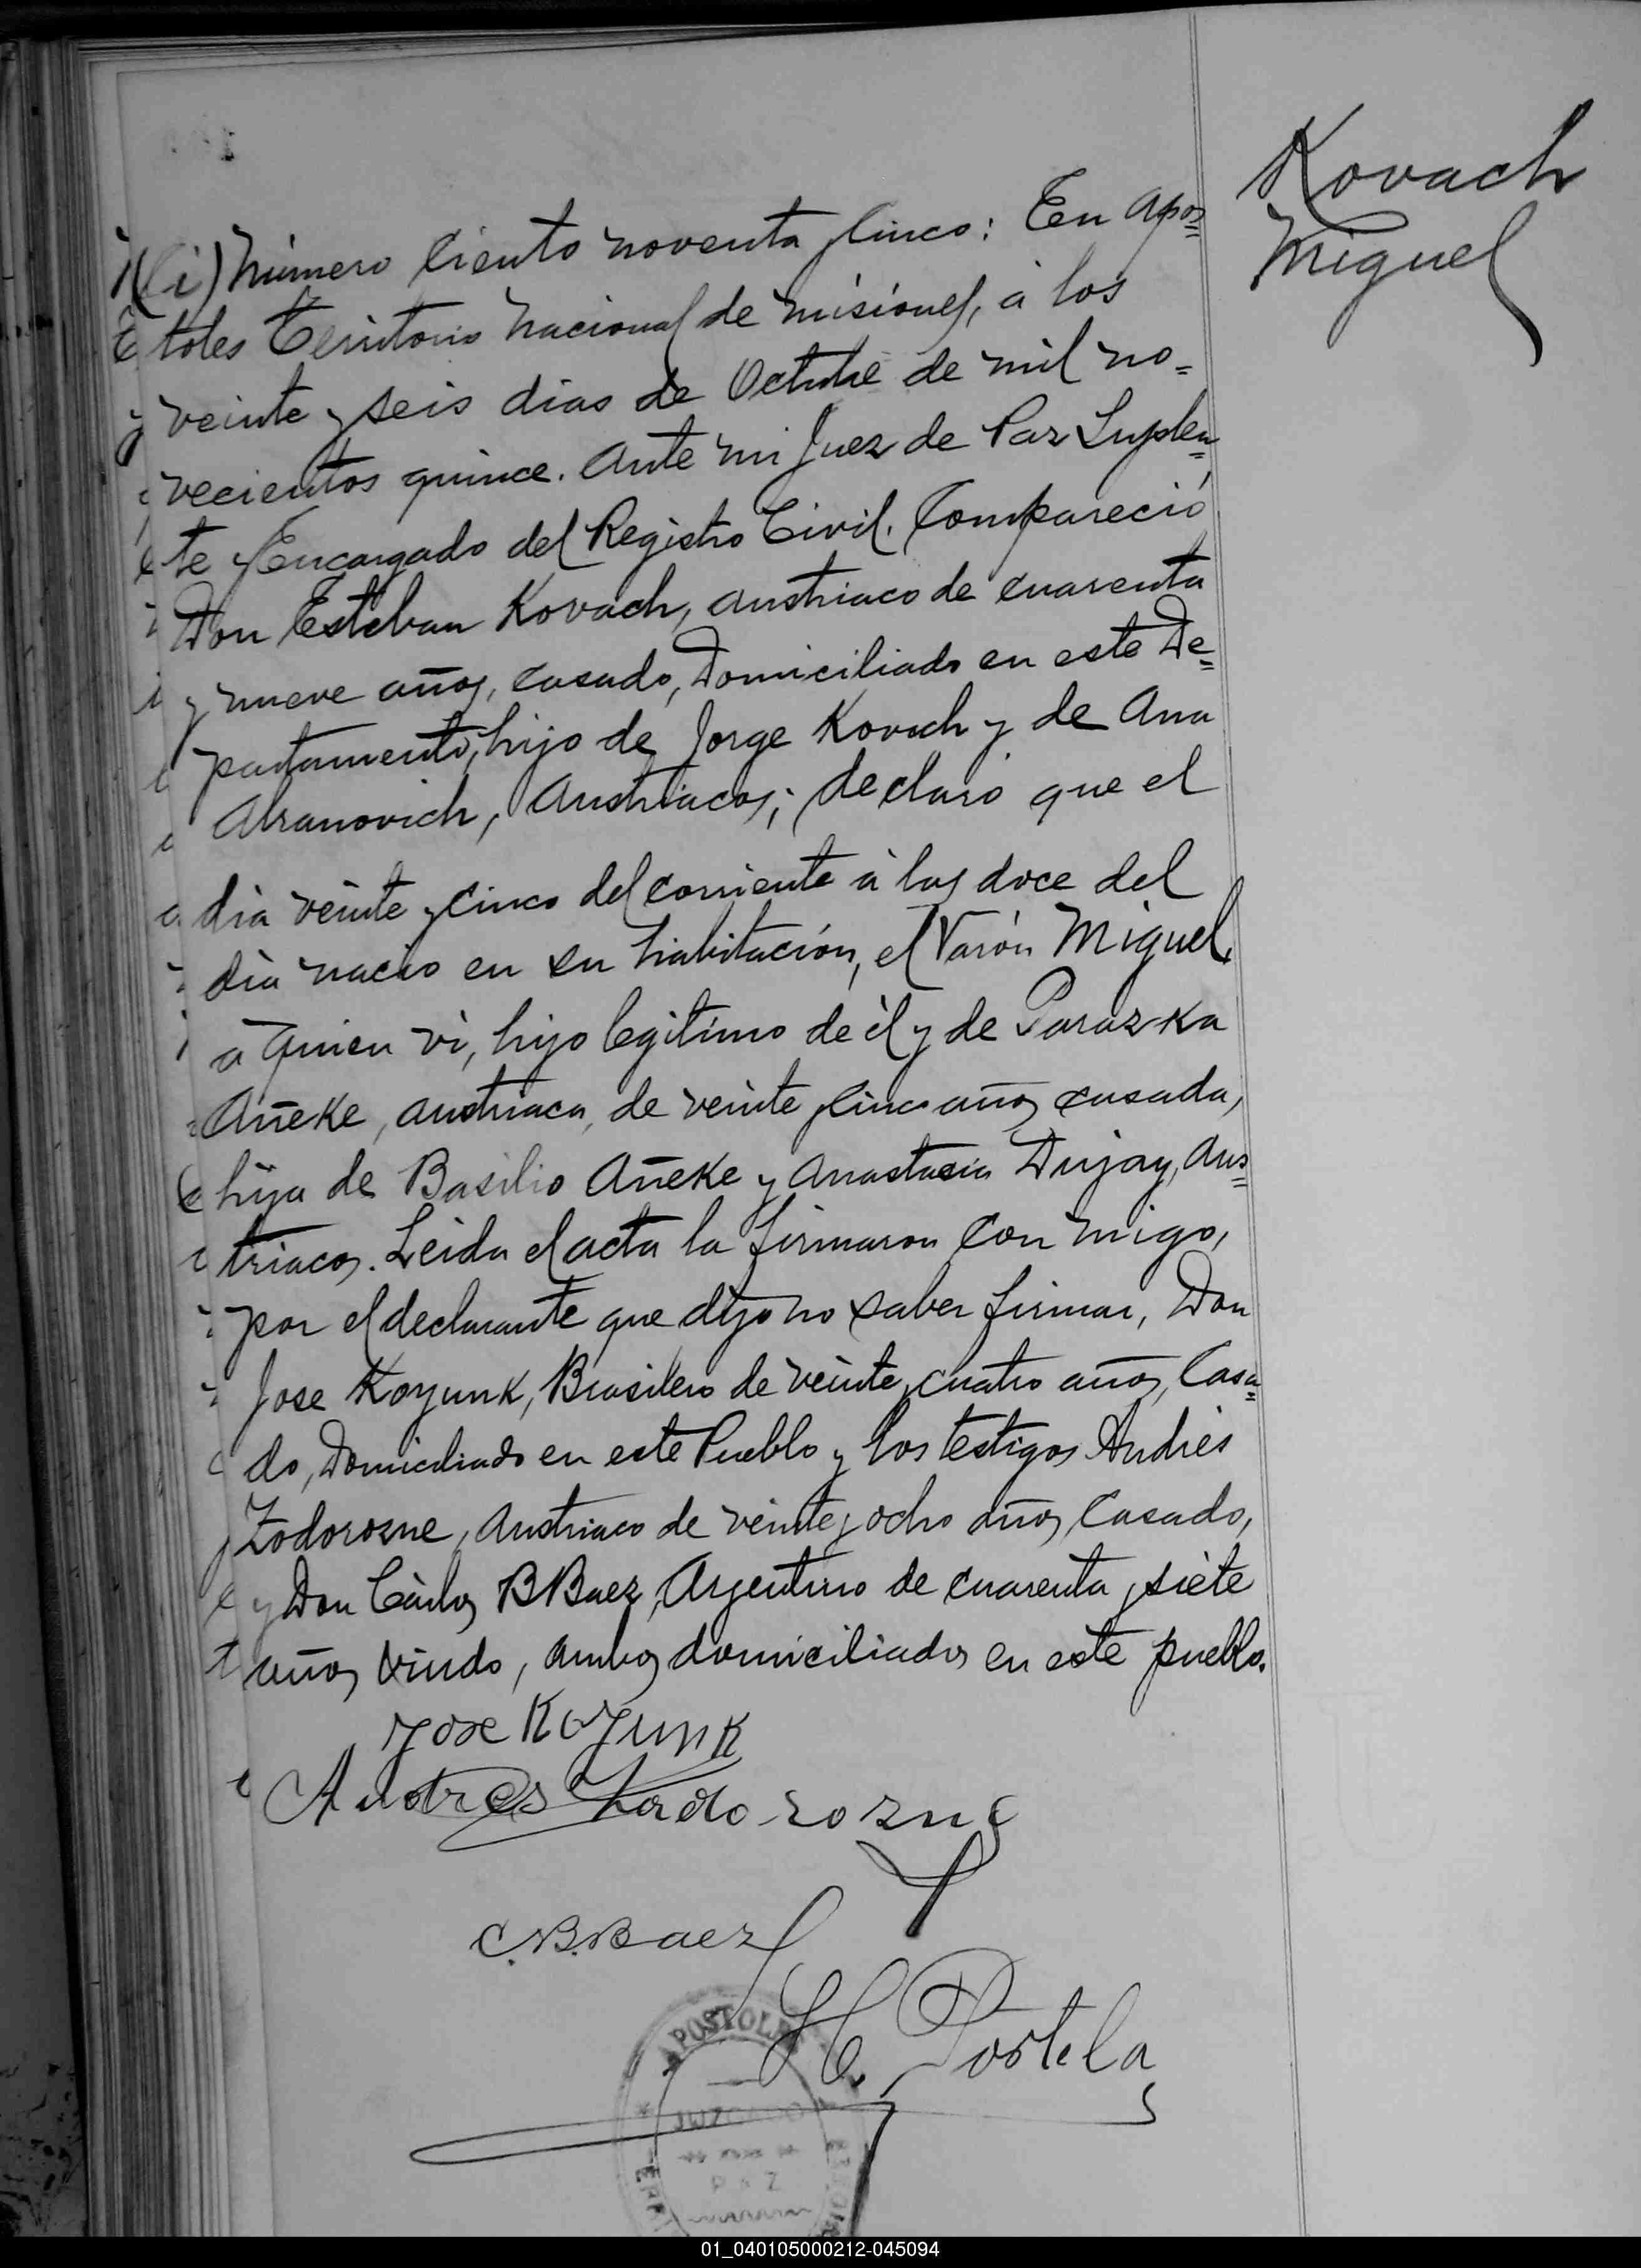 Kovach
Miguel
(i) Número Ciento noventa y Cinco: En Apos=
toles Territorio Nacional de Misiones, á los
veinte y seis dias de Octubre de mil no=
vecientos quince. Ante mi Juez de Paz Suplen=
te y Encargado del Registro Civil. Compareció
Don Esteban Kovach, austriaco de cuarenta
y nueve años, casado, Domiciliado en este De=
partamento, hijo de Jorge Kovach y de Ana
Abranovich, Austriacos; declaró que el
dia veinte y cinco del corriente á las doce del
dia nació en su habitación, el Varón Miguel,
a quien vi, hijo legitimo de él y de Parazka
Añeke, austriaca, de veinte y cinco años casada,
hija de Basilio Añeke y Anastacia Dujay, Aus=
triacos. Leida el acta la firmaron con migo,
por el declarante que dijo no saber firmar, Don
Jose Koyunk, Brasilero de veinte y cuatro años, Casa=
do, Domiciliado en este Pueblo y los testigos Andrés
Zodorozne, Austriaco de veinte y ocho años, Casado,
y Don Cárlos B Baez, Argentino de cuarenta y siete
años, Viudo, ambos domiciliados en este pueblo.
Jose Koyunk
Andres Zadorozne
C.B.Baez
H. Portela
APOSTOLES
JUZGADO
PAZ
01_040105000212-045094